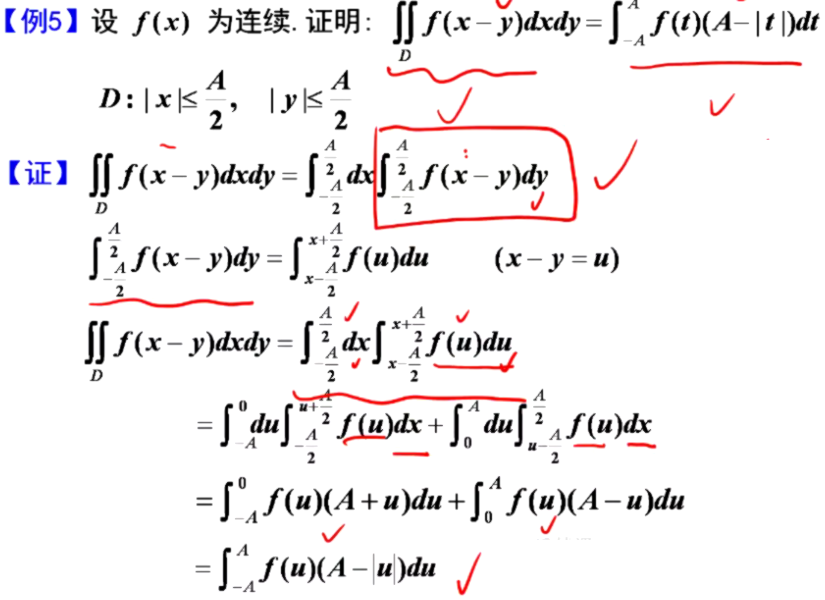 【例5】设 f(x) 为连续. 证明: ∬_D f(x−y)dxdy = ∫_{-A}^{A} f(t)(A−|t|)dt
D: |x|≤A/2, |y|≤A/2
【证】∬_D f(x−y)dxdy = ∫_{-A/2}^{A/2} dx ∫_{-A/2}^{A/2} f(x−y)dy
∫_{-A/2}^{A/2} f(x−y)dy = ∫_{x-A/2}^{x+A/2} f(u)du (x−y=u)
∬_D f(x−y)dxdy = ∫_{-A/2}^{A/2} dx ∫_{x-A/2}^{x+A/2} f(u)du
= ∫_{-A}^{0} du ∫_{-A/2}^{u+A/2} f(u)dx + ∫_{0}^{A} du ∫_{u-A/2}^{A/2} f(u)dx
= ∫_{-A}^{0} f(u)(A+u)du + ∫_{0}^{A} f(u)(A−u)du
= ∫_{-A}^{A} f(u)(A−|u|)du